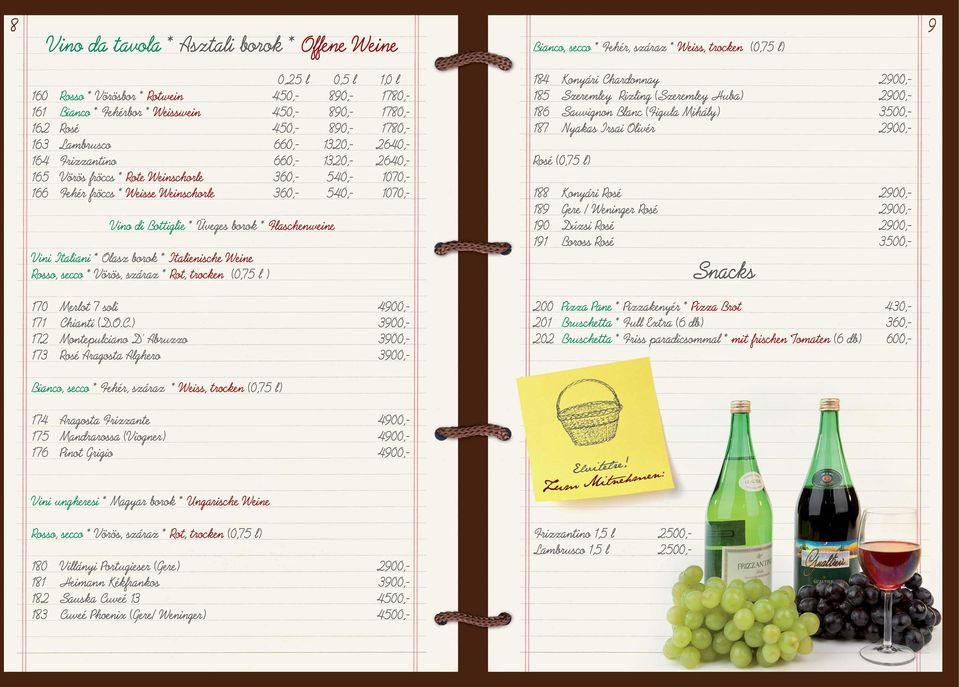 8
Vino da tavola * Asztali borok * Offene Weine
0,25 l 0,5 l 1,0 l
160 Rosso * Vörösbor * Rotwein 450,- 890,- 1780,-
161 Bianco * Fehérbor * Weisswein 450,- 890,- 1780,-
162 Rosé 450,- 890,- 1780,-
163 Lambrusco 660,- 1320,- 2640,-
164 Frizzantino 660,- 1320,- 2640,-
165 Vörös fröccs * Rote Weinschorle 360,- 540,- 1070,-
166 Fehér fröccs * Weisse Weinschorle 360,- 540,- 1070,-
Vino di Bottiglie * Üveges borok * Flaschenweine
Vini Italiani * Olasz borok * Italienische Weine
Rosso, secco * Vörös, száraz * Rot, trocken (0,75 l )
170 Merlot 7 soli 4900,-
171 Chianti (D.O.C.) 3900,-
172 Montepulciano D' Abruzzo 3900,-
173 Rosé Aragosta Alghero 3900,-
Bianco, secco * Fehér, száraz * Weiss, trocken (0,75 l)
174 Aragosta Frizzante 4900,-
175 Mandrarossa (Viogner) 4900,-
176 Pinot Grigio 4900,-
Vini ungheresi * Magyar borok * Ungarische Weine
Rosso, secco * Vörös, száraz * Rot, trocken (0,75 l)
180 Villányi Portugieser (Gere) 2900,-
181 Heimann Kékfrankos 3900,-
182 Sauska Cuveé 13 4500,-
183 Cuveé Phoenix (Gere/ Weninger) 4500,-
9
Bianco, secco * Fehér, száraz * Weiss, trocken (0,75 l)
184 Konyári Chardonnay 2900,-
185 Szeremley Rizling (Szeremley Huba) 2900,-
186 Sauvignon Blanc (Figula Mihály) 3500,-
187 Nyakas Irsai Olivér 2900,-
Rosé (0,75 l)
188 Konyári Rosé 2900,-
189 Gere / Weninger Rosé 2900,-
190 Dúzsi Rosé 2900,-
191 Boross Rosé 3500,-
Snacks
200 Pizza Pane * Pizzakenyér * Pizza Brot 430,-
201 Bruschetta * Full Extra (6 db) 360,-
202 Bruschetta * Friss paradicsommal * mit frischen Tomaten (6 db) 600,-
Elvitelre!
Zum Mitnehmen:
Frizzantino 1,5 l 2500,-
Lambrusco 1,5 l 2500,-
FRIZZANTINO
Gualtieri